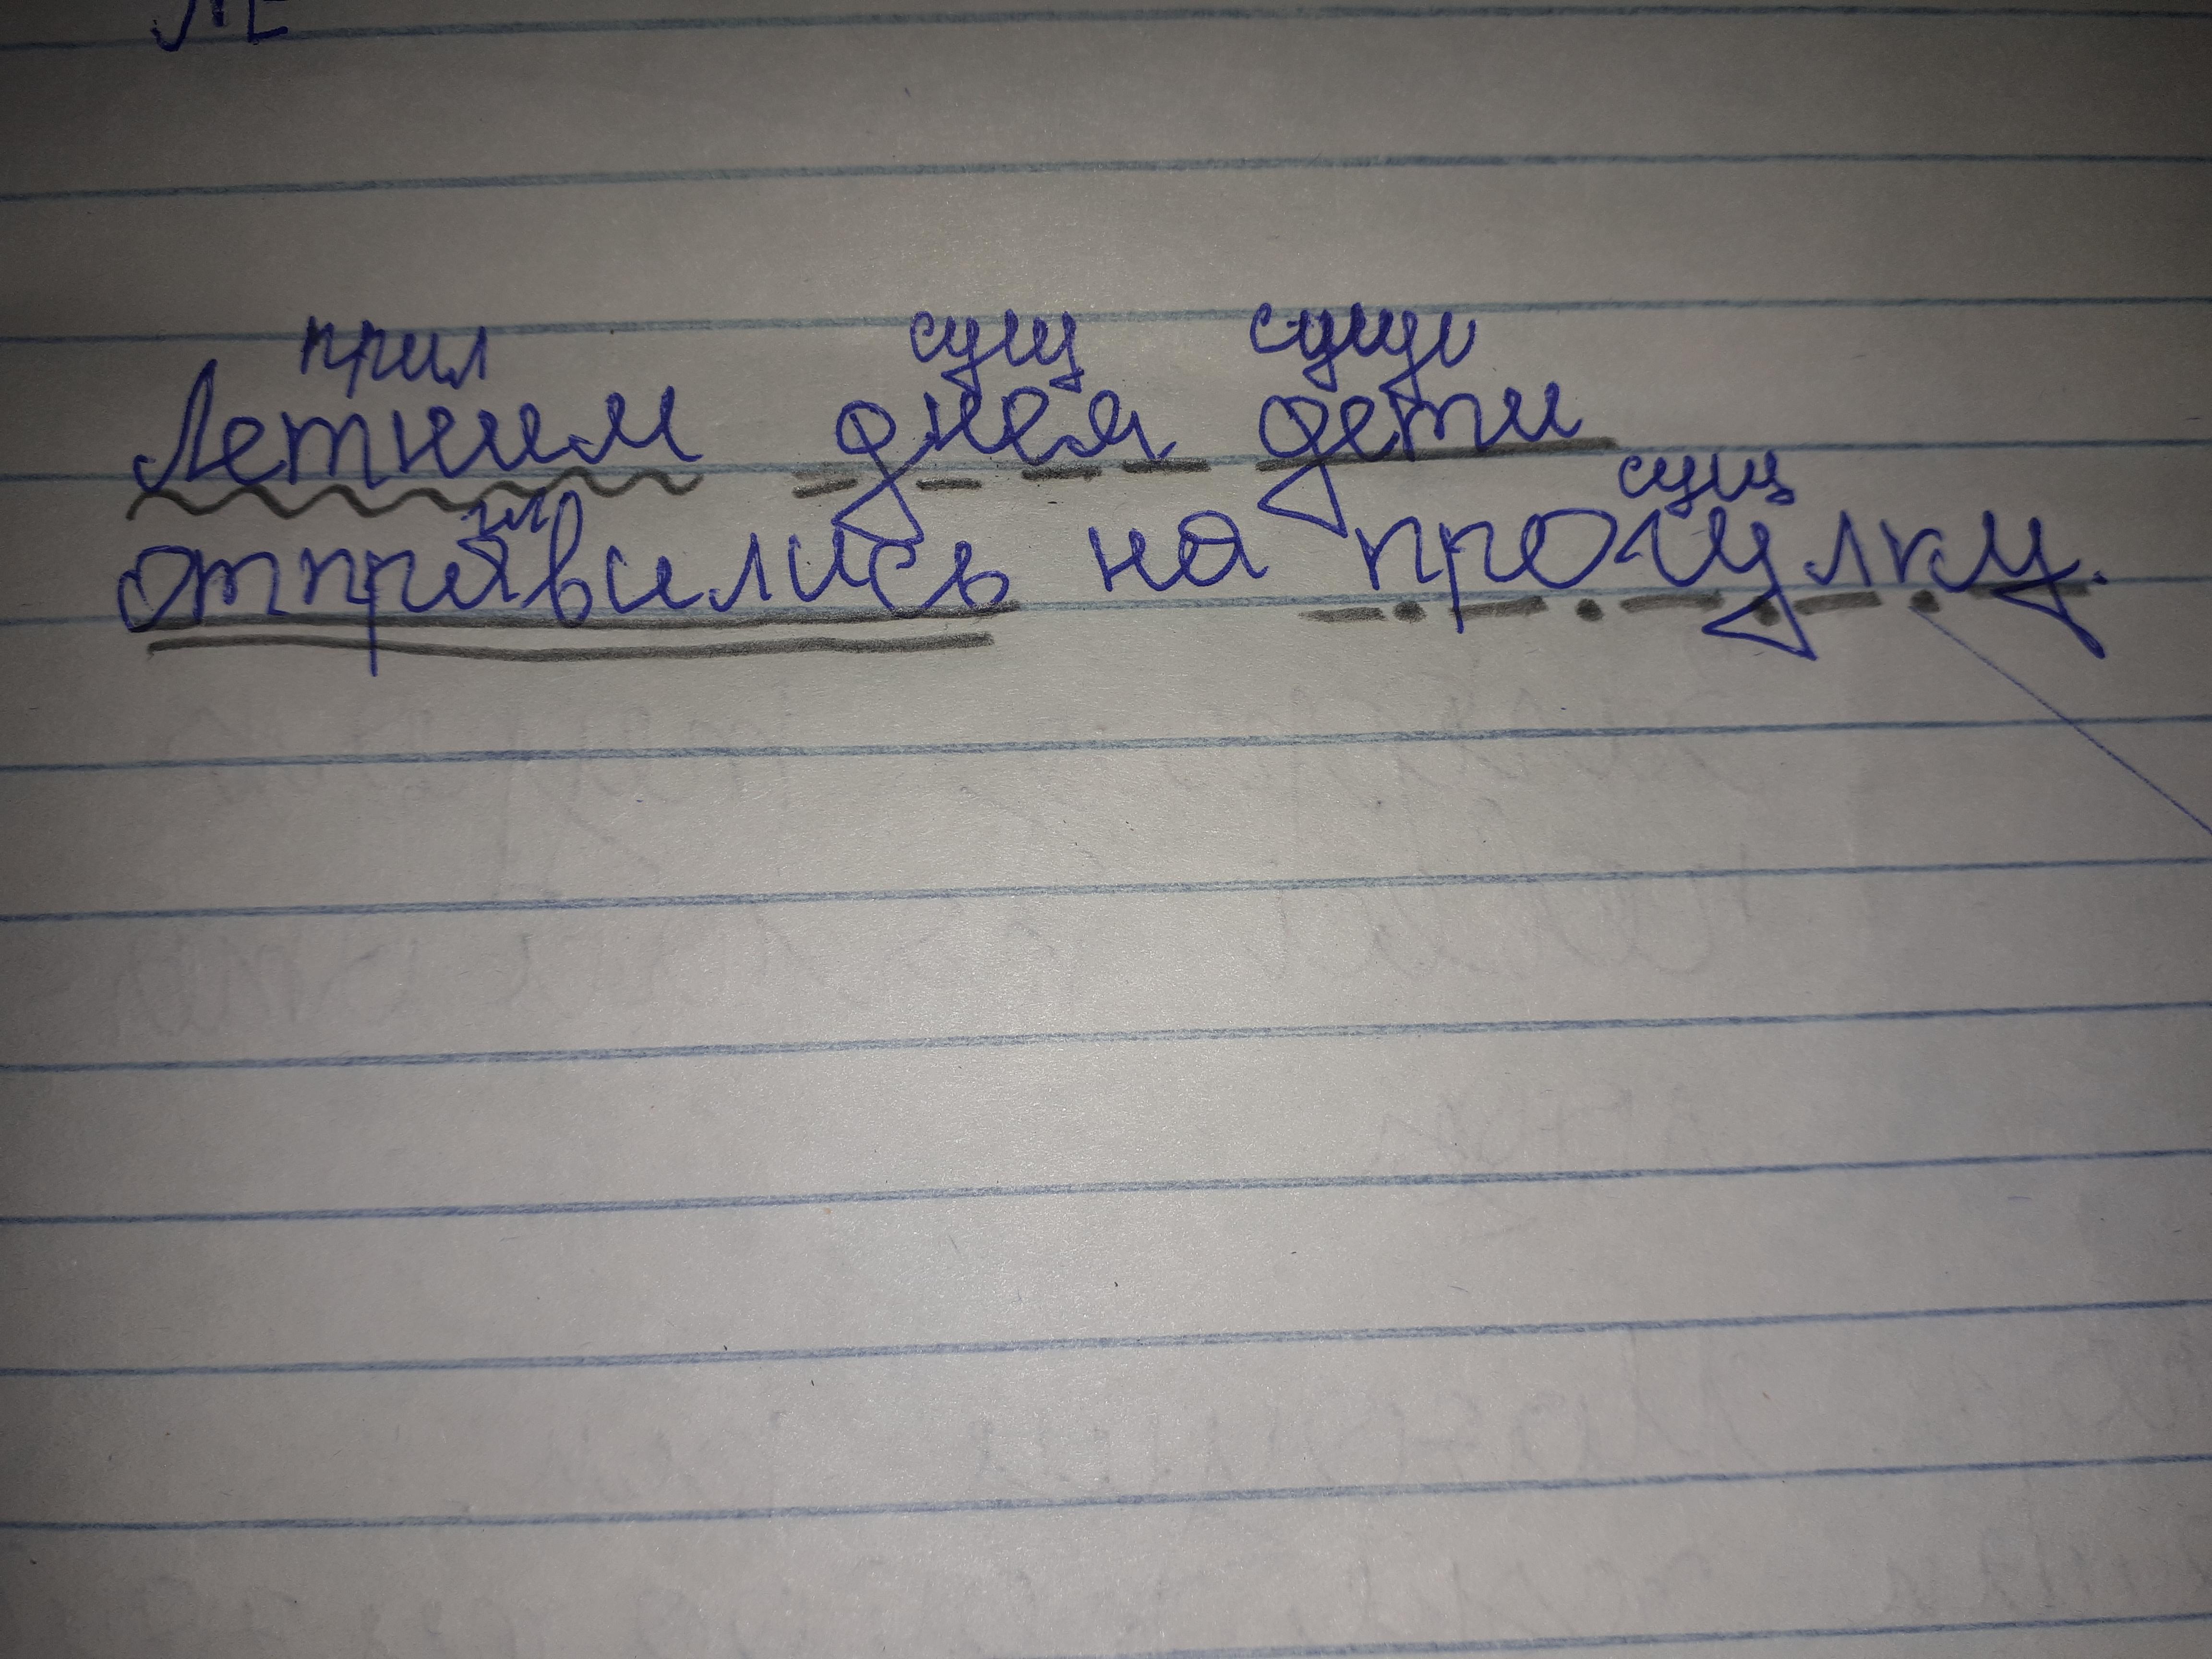 прил сущ сущ
Летним днем дети
гл сущ
отправились на прогулку.